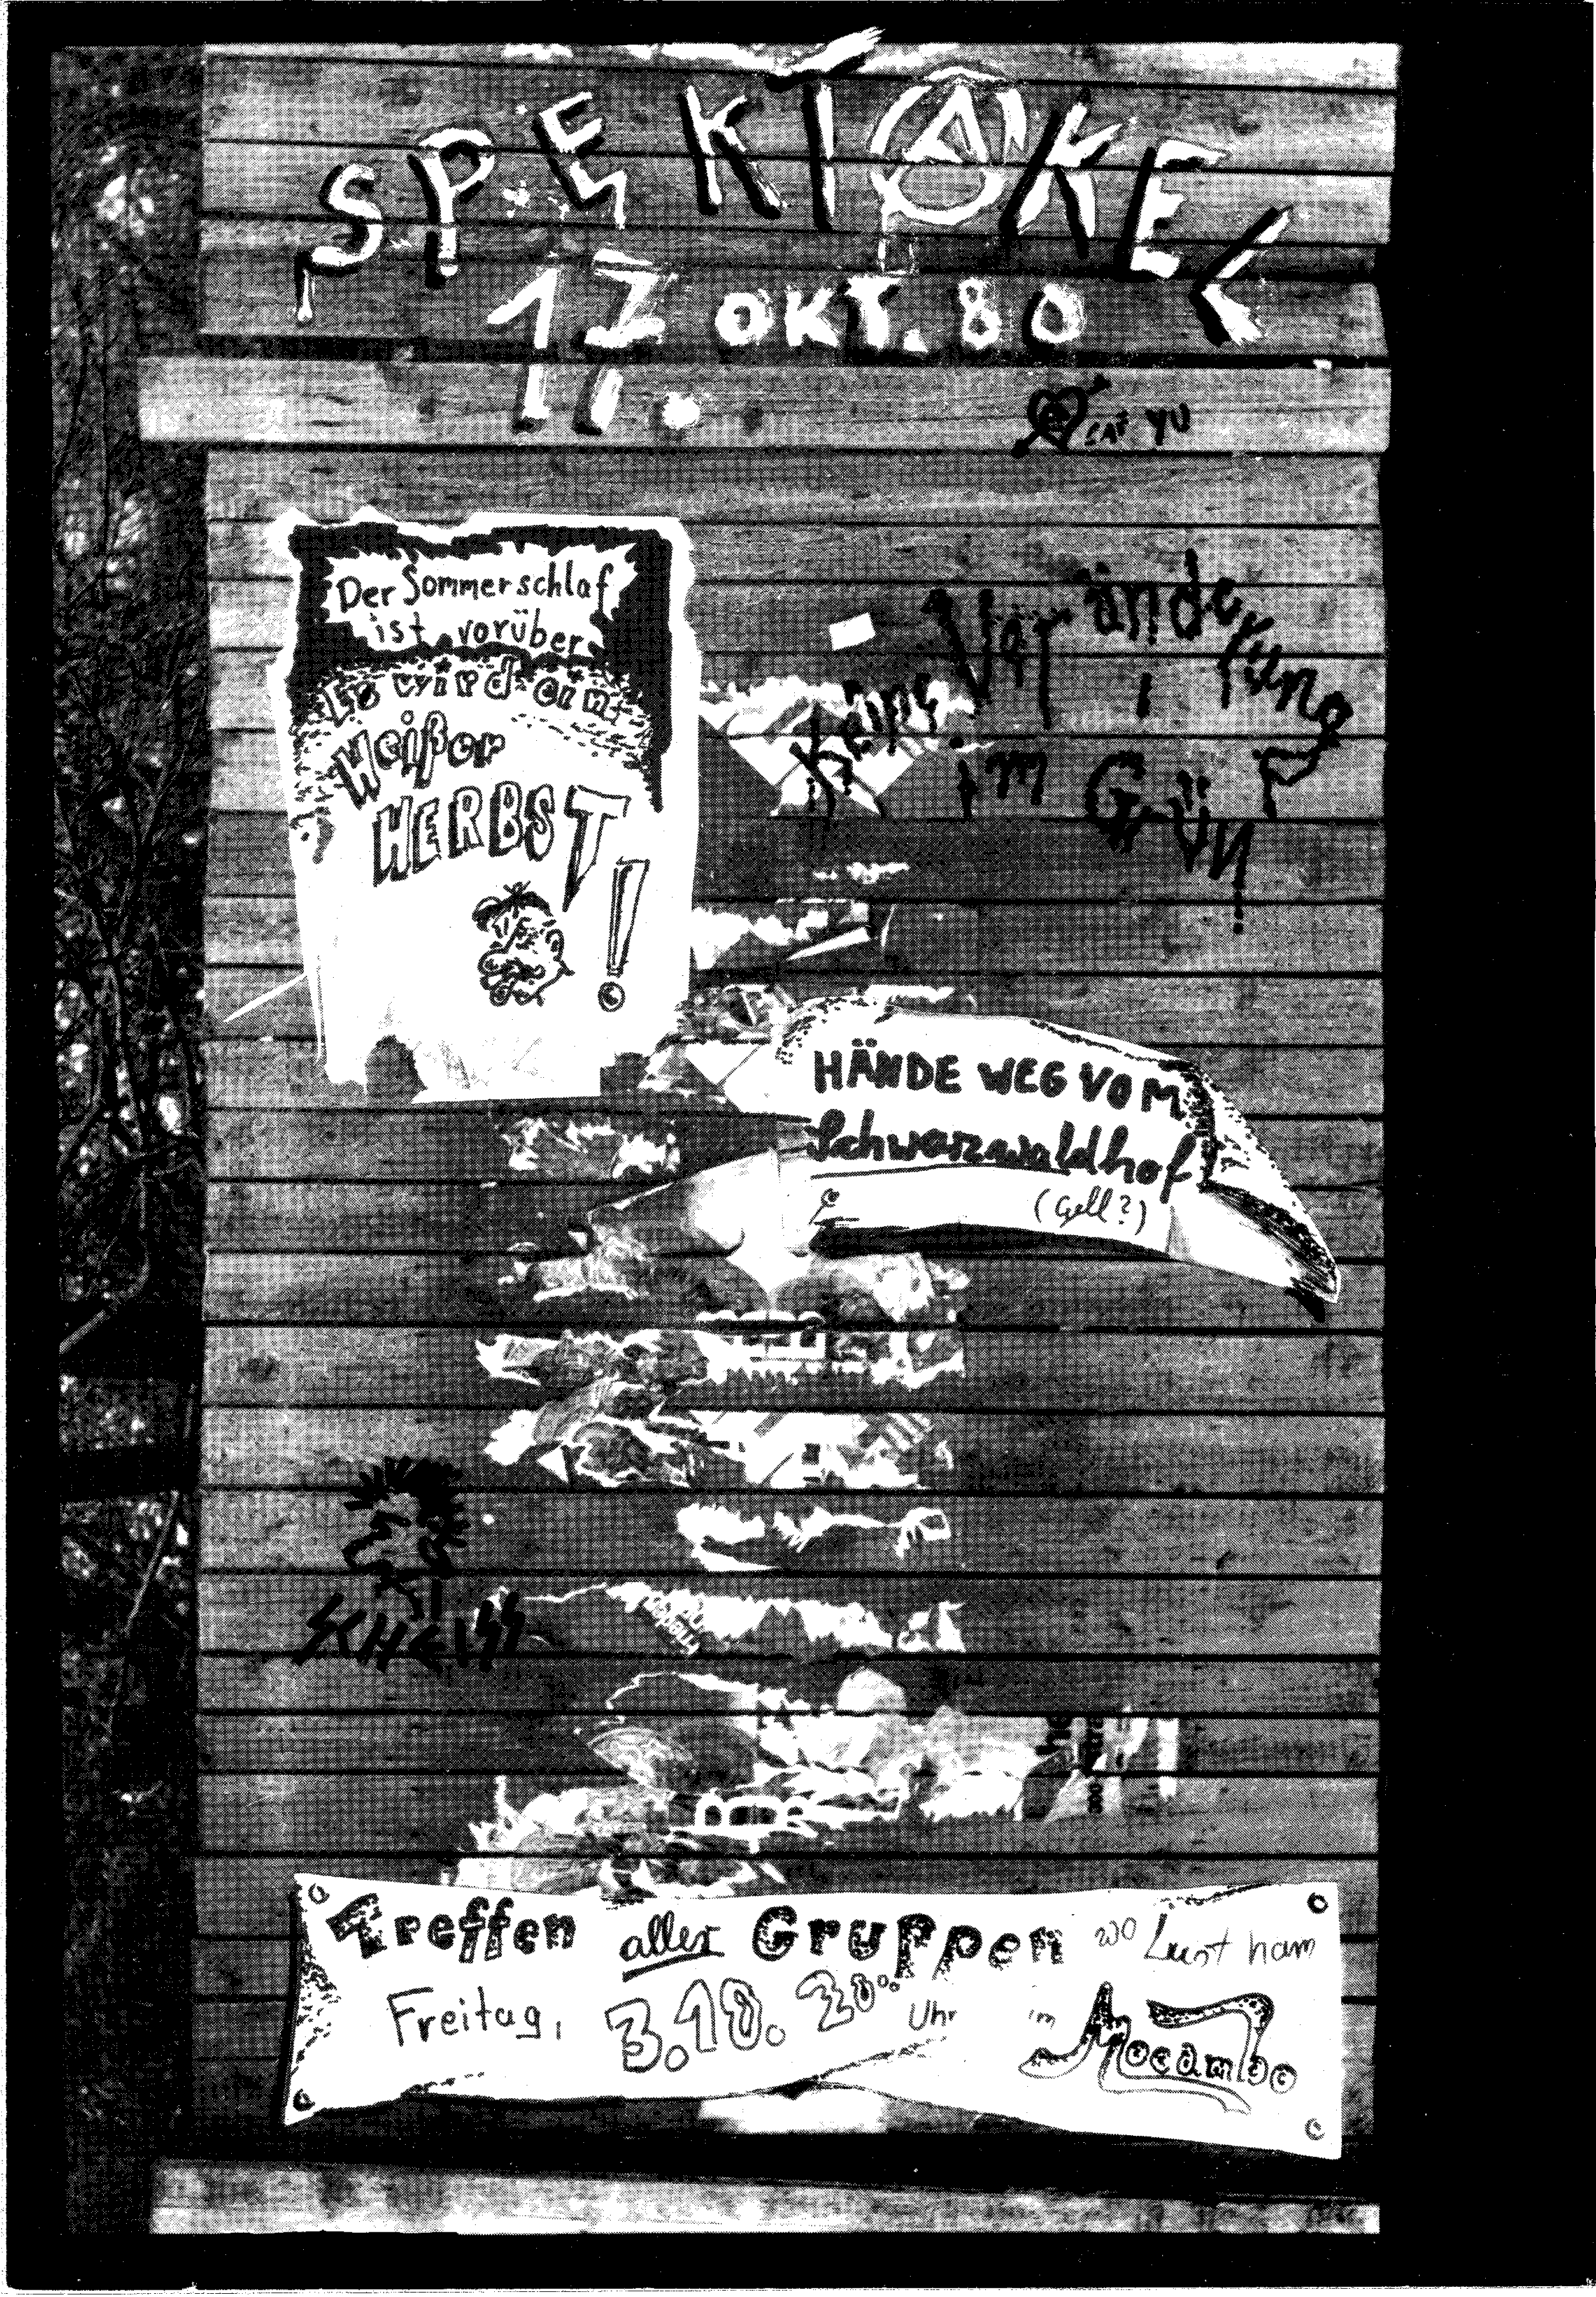 SPEKTAKEL
17. OKT. 80
YU
Der Sommerschlaf
ist vorüber
Es wird ein
Heißer
HERBST!
Keine Veränderung
im Grün
HÄNDE WEG VOM
Schwarzwaldhof
(Gell?)
SCHEISS
Treffen aller Gruppen wo Lust ham
Freitag, 3.10. 20.00 Uhr im Mocambo